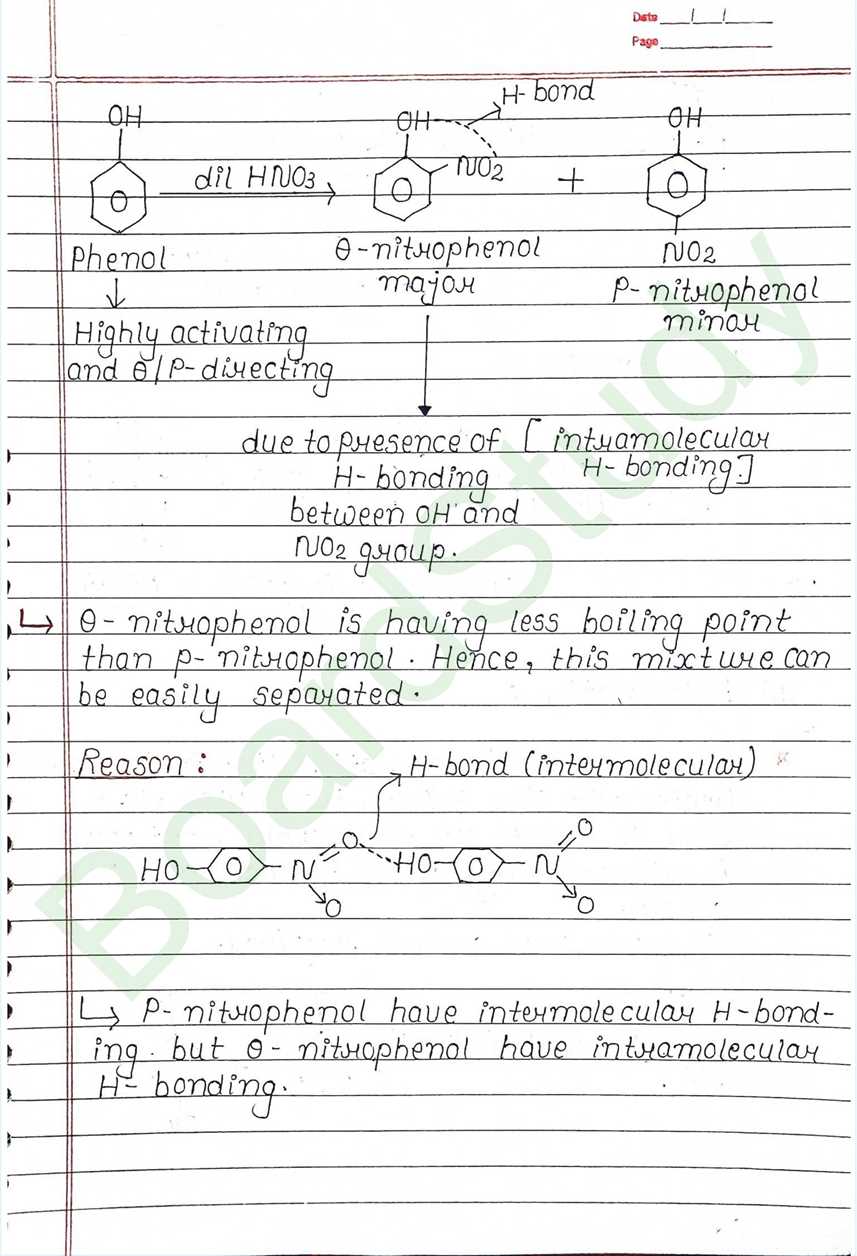 Date / / /
Page
H-bond
OH
OH
OH
dil HNO3
NO2
+
O
O
O
Phenol
θ-nitrophenol
major
NO2
P-nitrophenol
minor
Highly activating
and θ/P-directing
due to presence of [intramolecular
H-bonding
H-bonding]
between OH and
NO2 group.
θ-nitrophenol is having less boiling point
than p-nitrophenol. Hence, this mixture can
be easily separated.
Reason:
H-bond (intermolecular)
HO O N O O HO O N O O
P-nitrophenol have intermolecular H-bond-
ing. but θ-nitrophenol have intramolecular
H-bonding.
BoardStudy